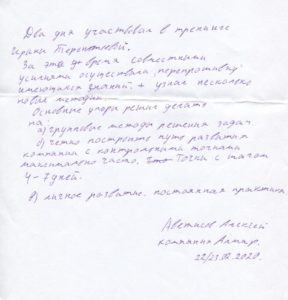 Два дня участвовал в тренинге
Ирины Терентьевой.
За это время совместными
усилиями осуществили перепрошивку
имеющихся знаний, + узнал несколько
новых методик.
Основные упоры решил делать
на:
а) групповые методы решения задач
б) четко построить пути развития
компании с контрольными точками
максимально часто. Точки с шагом
4-7 дней.
в) личное развитие. постоянная практика
Аветисов Алексей
компания
22/23.02.2020.